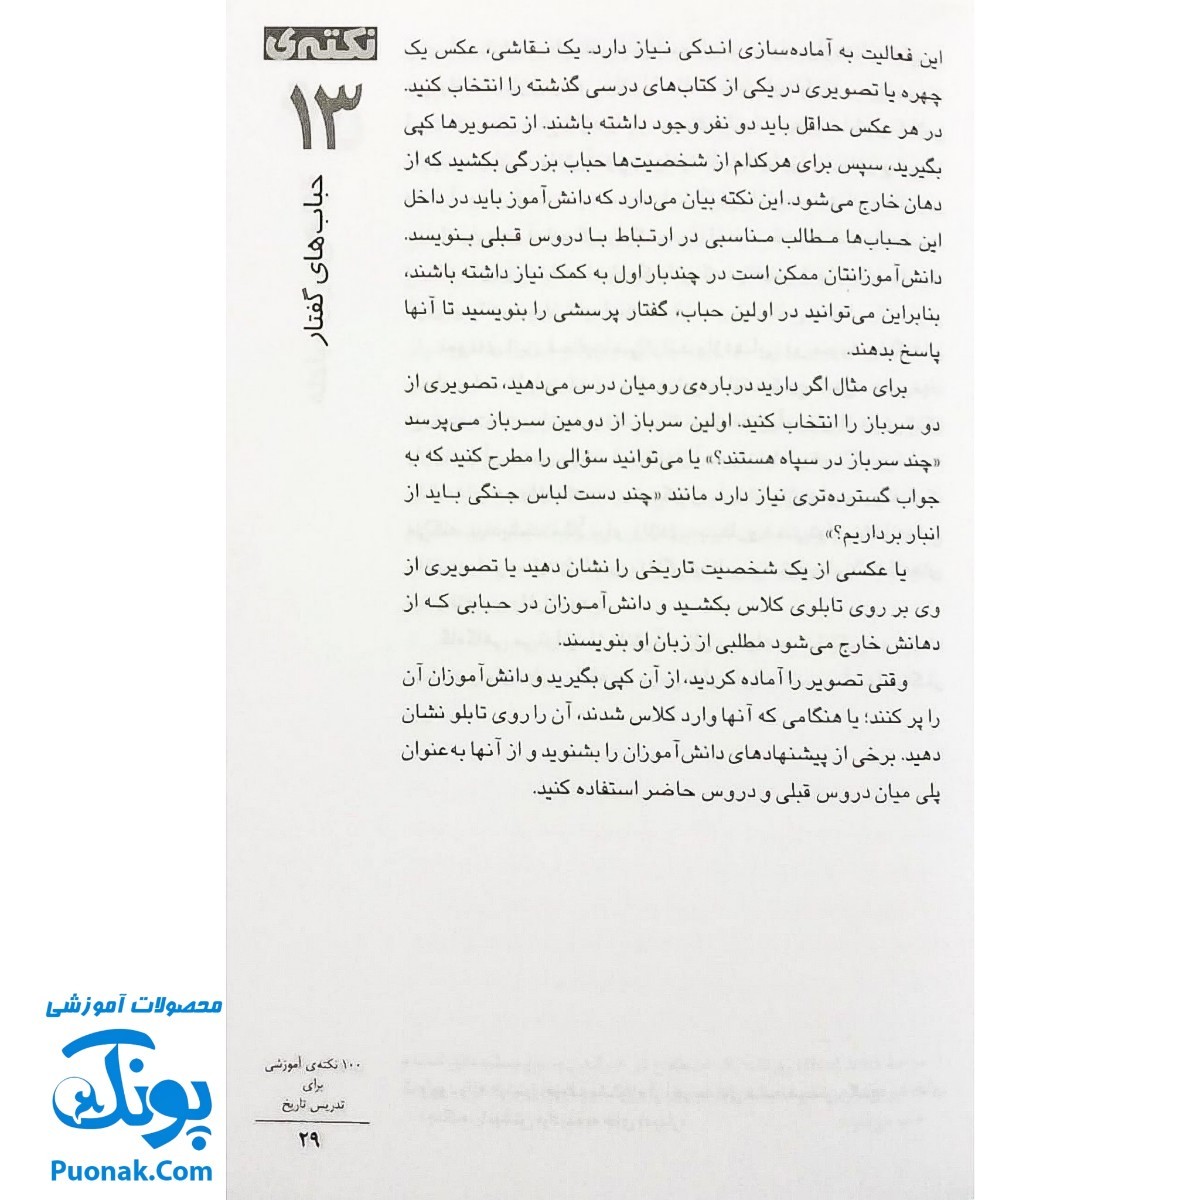 نکته‌ی
۱۳
حباب‌های گفتار
این فعالیت به آماده‌سازی اندکی نیاز دارد. یک نقاشی، عکس یک
چهره یا تصویری در یکی از کتاب‌های درسی گذشته را انتخاب کنید.
در هر عکس حداقل باید دو نفر وجود داشته باشند. از تصویرها کپی
بگیرید، سپس برای هرکدام از شخصیت‌ها حباب بزرگی بکشید که از
دهان خارج می‌شود. این نکته بیان می‌دارد که دانش‌آموز باید در داخل
این حباب‌ها مطالب مناسبی در ارتباط با دروس قبلی بنویسد.
دانش‌آموزانتان ممکن است در چندبار اول به کمک نیاز داشته باشند،
بنابراین می‌توانید در اولین حباب، گفتار پرسشی را بنویسید تا آنها
پاسخ بدهند.
برای مثال اگر دارید درباره‌ی رومیان درس می‌دهید، تصویری از
دو سرباز را انتخاب کنید. اولین سرباز از دومین سرباز می‌پرسد
«چند سرباز در سپاه هستند؟» یا می‌توانید سؤالی را مطرح کنید که به
جواب گسترده‌تری نیاز دارد مانند «چند دست لباس جنگی باید از
انبار برداریم؟»
یا عکسی از یک شخصیت تاریخی را نشان دهید یا تصویری از
وی بر روی تابلوی کلاس بکشید و دانش‌آموزان در حبابی که از
دهانش خارج می‌شود مطلبی از زبان او بنویسند.
وقتی تصویر را آماده کردید، از آن کپی بگیرید و دانش‌آموزان آن
را پر کنند؛ یا هنگامی که آنها وارد کلاس شدند، آن را روی تابلو نشان
دهید. برخی از پیشنهادهای دانش‌آموزان را بشنوید و از آنها به‌عنوان
پلی میان دروس قبلی و دروس حاضر استفاده کنید.
۱۰۰ نکته‌ی آموزشی
برای
تدریس تاریخ
۲۹
محصولات آموزشی
پونک
Puonak.Com